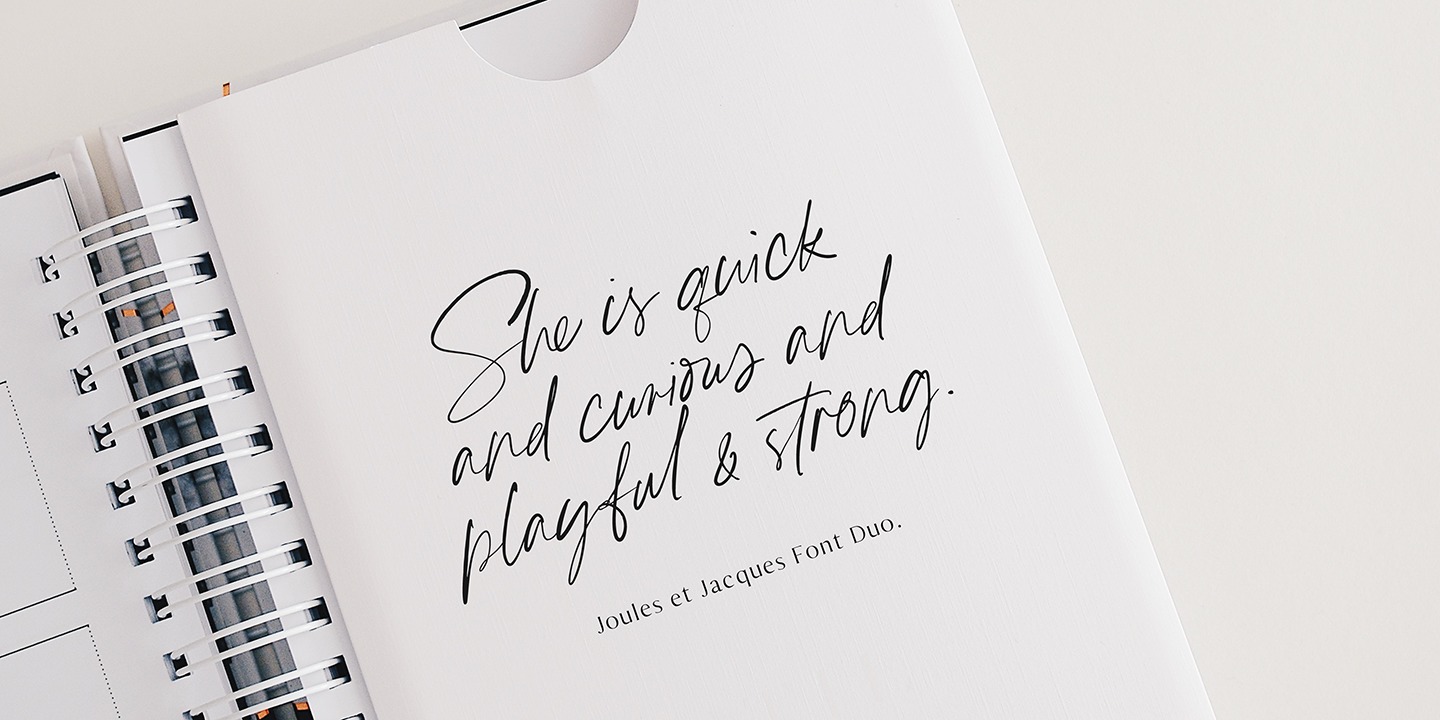 She is quick
and curious and
playful & strong.
Joules et Jacques Font Duo.